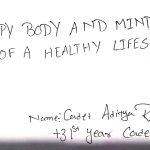 PY BODY AND MIND
OF A HEALTHY LIFES
Name: Cadet Aditya
31st year Cade